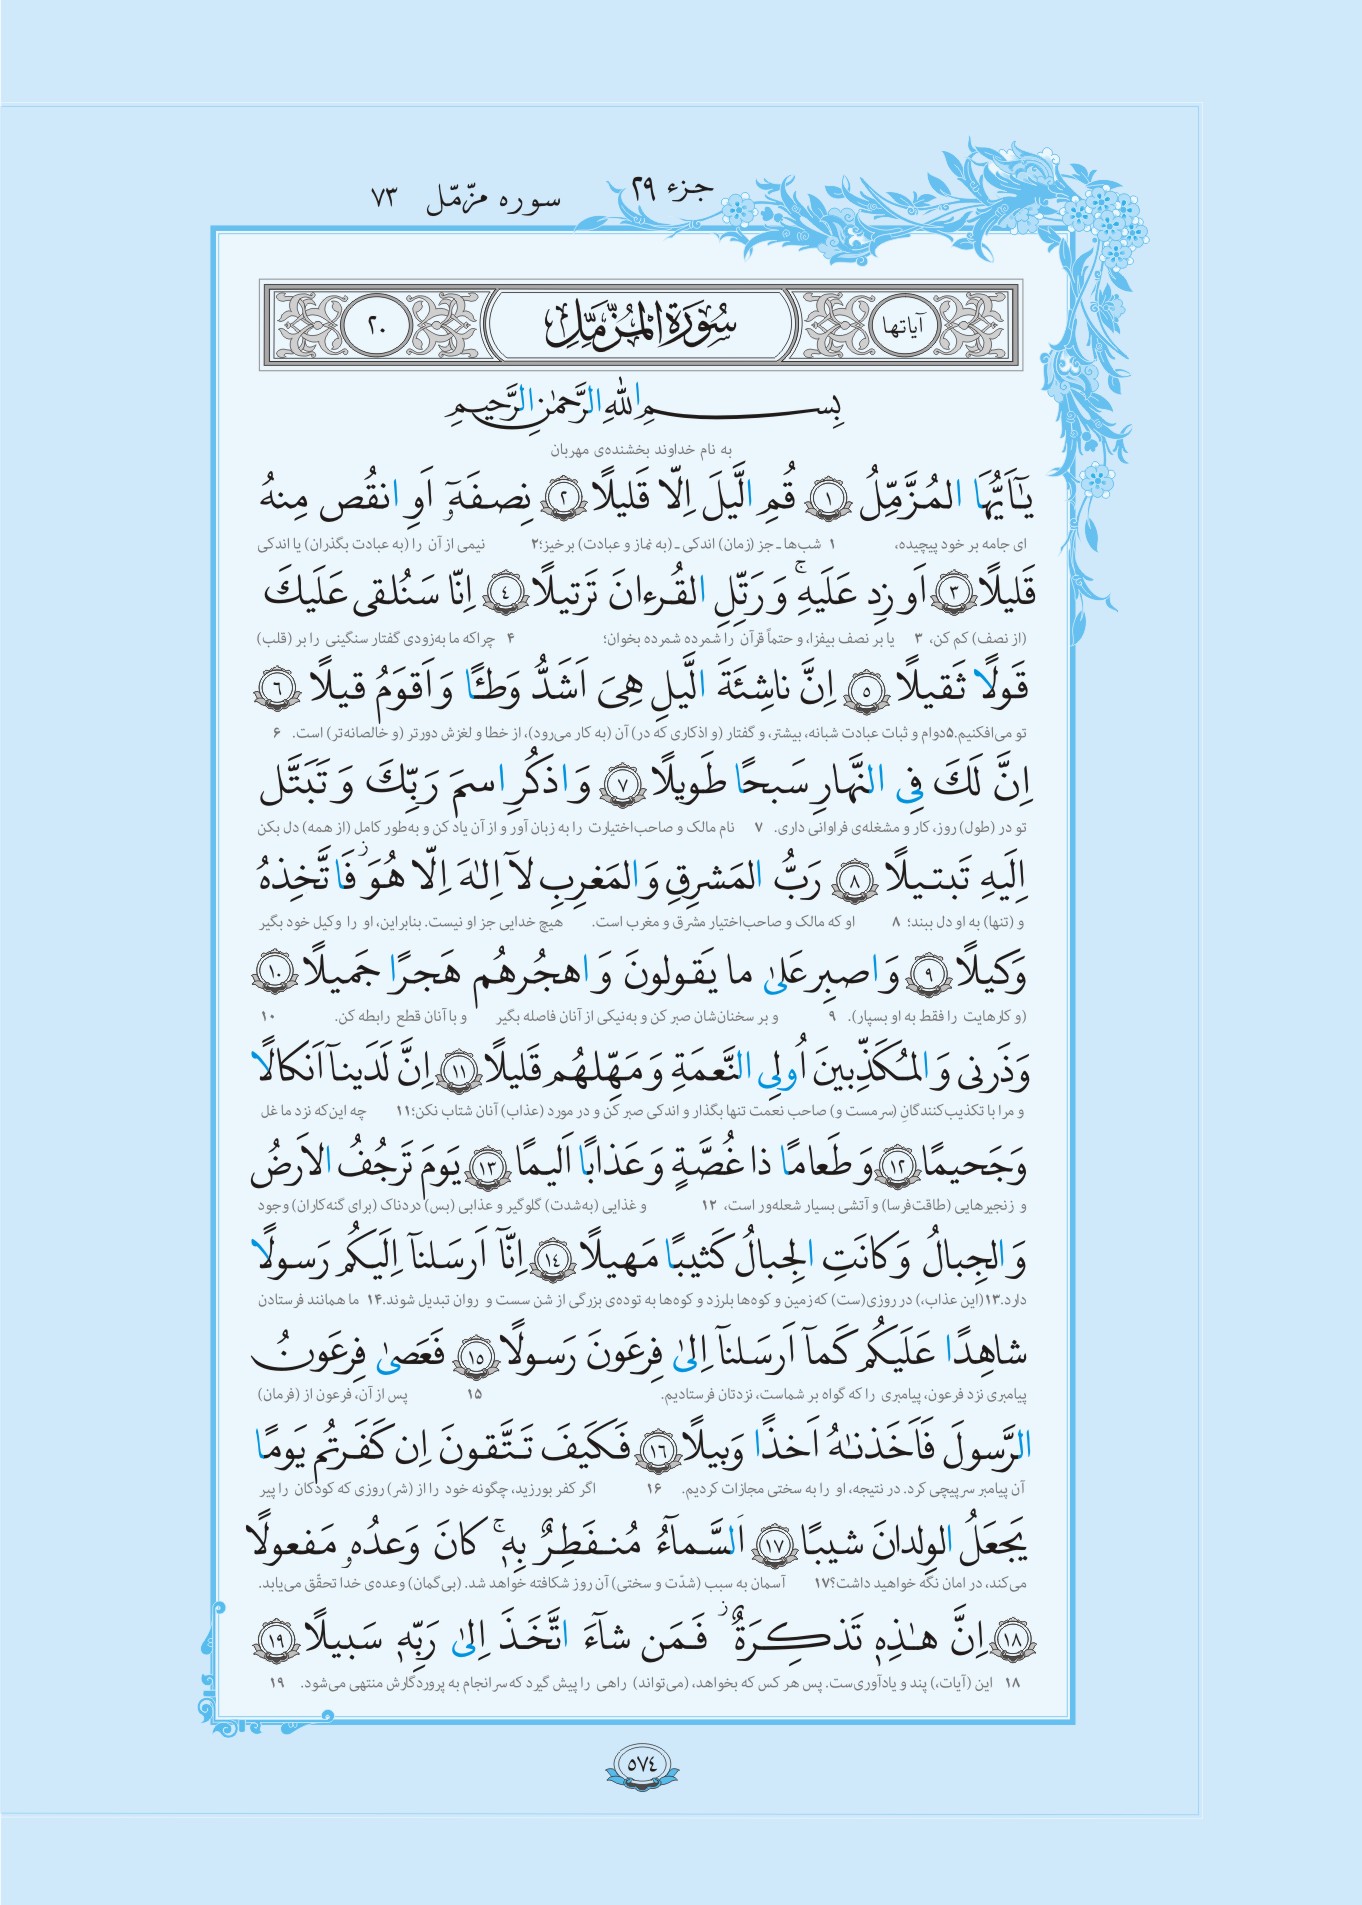 جزء ۲۹
سوره مزّمّل ۷۳
آیاتها
سُورَةُ الْمُزَّمِّلِ
۲۰
بِسمِ اللهِ الرَّحمٰنِ الرَّحیمِ
به نام خداوند بخشنده‌ی مهربان
یٰٓاَیُّهَا المُزَّمِّلُ ١ قُمِ الَّیلَ اِلّا قَلیلًا ٢ نِصفَهٗٓ اَوِ انقُص مِنهُ
ای جامه بر خود پیچیده، ۱ شب‌ها ـ جز (زمان) اندکی ـ (به نماز و عبادت) برخیز؛۲ نیمی از آن را (به عبادت بگذران) یا اندکی
قَلیلًا ٣ اَو زِد عَلَیهِ ۚ وَ رَتِّلِ القُرءانَ تَرتیلًا ٤ اِنّا سَنُلقی عَلَیكَ
(از نصف) کم کن، ۳ یا بر نصف بیفزا، و حتماً قرآن را شمرده شمرده بخوان؛ ۴ چراکه ما به‌زودی گفتار سنگینی را بر (قلب)
قَولًا ثَقیلًا ٥ اِنَّ ناشِئَةَ الَّیلِ هِیَ اَشَدُّ وَطئًا وَ اَقوَمُ قیلًا ٦
تو می‌افکنیم.۵دوام و ثبات عبادت شبانه، بیشتر، و گفتار (و اذکاری که در) آن (به کار می‌رود)، از خطا و لغزش دورتر (و خالصانه‌تر) است. ۶
اِنَّ لَكَ فِی النَّهارِ سَبحًا طَویلًا ٧ وَ اذكُرِ اسمَ رَبِّكَ وَ تَبَتَّل
تو در (طول) روز، کار و مشغله‌ی فراوانی داری. ۷ نام مالک و صاحب‌اختیارت را به زبان آور و از آن یاد کن و به‌طور کامل (از همه) دل بکن
اِلَیهِ تَبتیلًا ٨ رَبُّ المَشرِقِ وَ المَغرِبِ لآ اِلٰهَ اِلّا هُوَ ز فَاتَّخِذهُ
و (تنها) به او دل ببند؛ ۸ او که مالک و صاحب‌اختیار مشرق و مغرب است. هیچ خدایی جز او نیست. بنابراین، او را وکیل خود بگیر
وَكیلًا ٩ وَ اصبِر عَلیٰ ما یَقولونَ وَ اهجُرهُم هَجرًا جَمیلًا ١٠
(و کارهایت را فقط به او بسپار). ۹ و بر سخنان‌شان صبر کن و به‌نیکی از آنان فاصله بگیر و با آنان قطع رابطه کن. ۱۰
وَ ذَرنی وَ المُكَذِّبینَ اُولِی النَّعمَةِ وَ مَهِّلهُم قَلیلًا ١١ اِنَّ لَدَینآ اَنكالًا
و مرا با تکذیب‌کنندگانِ (سرمست و) صاحب نعمت تنها بگذار و اندکی صبر کن و در مورد (عذاب) آنان شتاب نکن؛۱۱ چه این‌که نزد ما غل
وَ جَحیمًا ١٢ وَ طَعامًا ذا غُصَّةٍ وَ عَذابًا اَلیمًا ١٣ یَومَ تَرجُفُ الاَرضُ
و زنجیرهایی (طاقت‌فرسا) و آتشی بسیار شعله‌ور است، ۱۲ و غذایی (به‌شدت) گلوگیر و عذابی (بس) دردناک (برای گنه‌کاران) وجود
وَ الجِبالُ وَ كانَتِ الجِبالُ كَثیبًا مَهیلًا ١٤ اِنّآ اَرسَلنآ اِلَیكُم رَسولًا
دارد.۱۳(این عذاب،) در روزی(ست) که زمین و کوه‌ها بلرزد و کوه‌ها به توده‌ی بزرگی از شن سست و روان تبدیل شوند.۱۴ ما همانند فرستادن
شاهِدًا عَلَیكُم كَمآ اَرسَلنآ اِلیٰ فِرعَونَ رَسولًا ١٥ فَعَصیٰ فِرعَونُ
پیامبری نزد فرعون، پیامبری را که گواه بر شماست، نزدتان فرستادیم. ۱۵ پس از آن، فرعون از (فرمان)
الرَّسولَ فَاَخَذنٰهُ اَخذًا وَبیلًا ١٦ فَكَیفَ تَتَّقونَ اِن كَفَرتُم یَومًا
آن پیامبر سرپیچی کرد. در نتیجه، او را به سختی مجازات کردیم. ۱۶ اگر کفر بورزید، چگونه خود را از (شر) روزی که کودکان را پیر
یَجعَلُ الوِلدانَ شیبًا ١٧ اَلسَّمآءُ مُنفَطِرٌ بِهٖ ۚ كانَ وَعدُهٗ مَفعولًا
می‌کند، در امان نگه خواهید داشت؟۱۷ آسمان به سبب (شدّت و سختی) آن روز شکافته خواهد شد. (بی‌گمان) وعده‌ی خدا تحقّق می‌یابد.
١٨ اِنَّ هٰذِهٖ تَذكِرَةٌ ز فَمَن شآءَ اتَّخَذَ اِلیٰ رَبِّهٖ سَبیلًا ١٩
۱۸ این (آیات،) پند و یادآوری‌ست. پس هر کس که بخواهد، (می‌تواند) راهی را پیش گیرد که سرانجام به پروردگارش منتهی می‌شود. ۱۹
٥٧٤